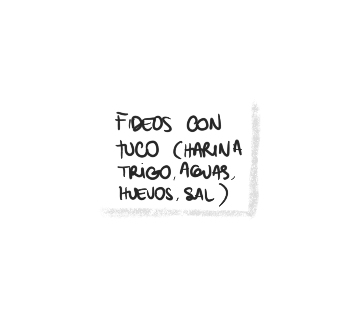 FIDEOS CON
TUCO (HARINA
TRIGO, AGUAS,
HUEVOS, SAL)